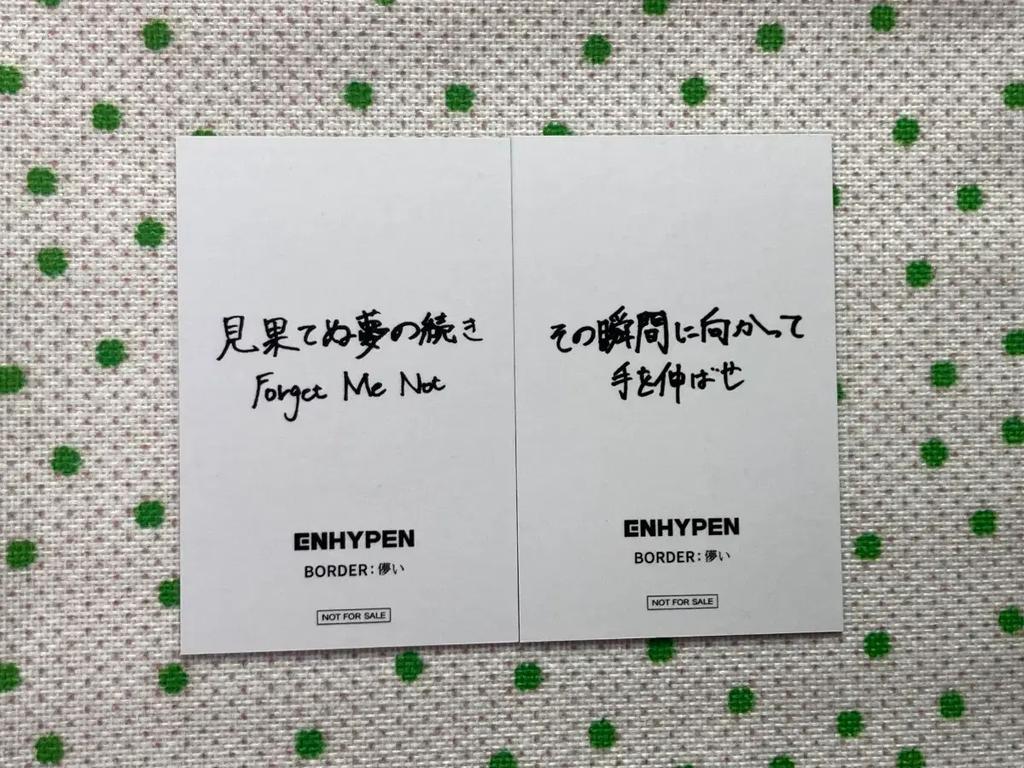 見果てぬ夢の続き
Forget Me Not
ENHYPEN
BORDER : 儚い
NOT FOR SALE
その瞬間に向かって
手を伸ばせ
ENHYPEN
BORDER : 儚い
NOT FOR SALE